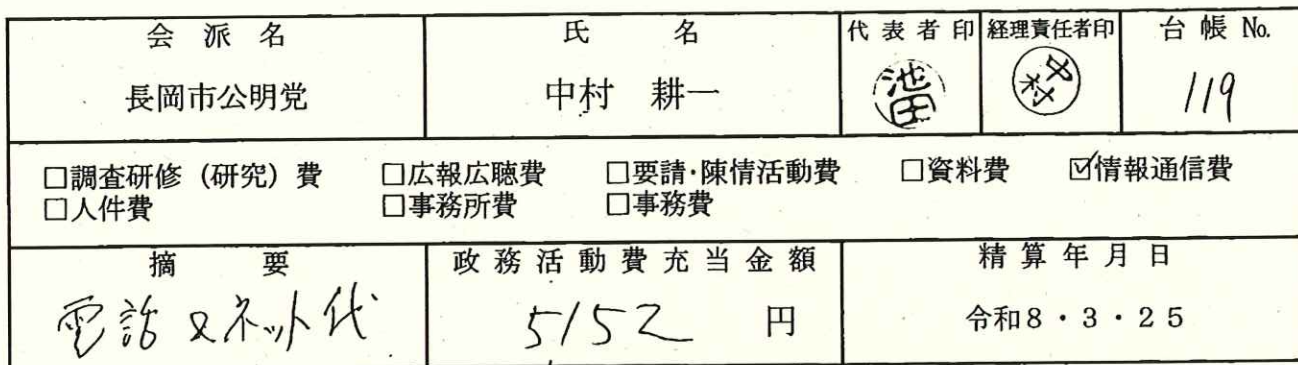 会派名 氏名 代表者印 経理責任者印 台帳 No.
長岡市公明党 中村 耕一 池田 中村 119
□調査研修(研究)費 □広報広聴費 □要請・陳情活動費 □資料費 ☑情報通信費
□人件費 □事務所費 □事務費
摘要 政務活動費充当金額 精算年月日
電話 ネット代 5152 円 令和8・3・25